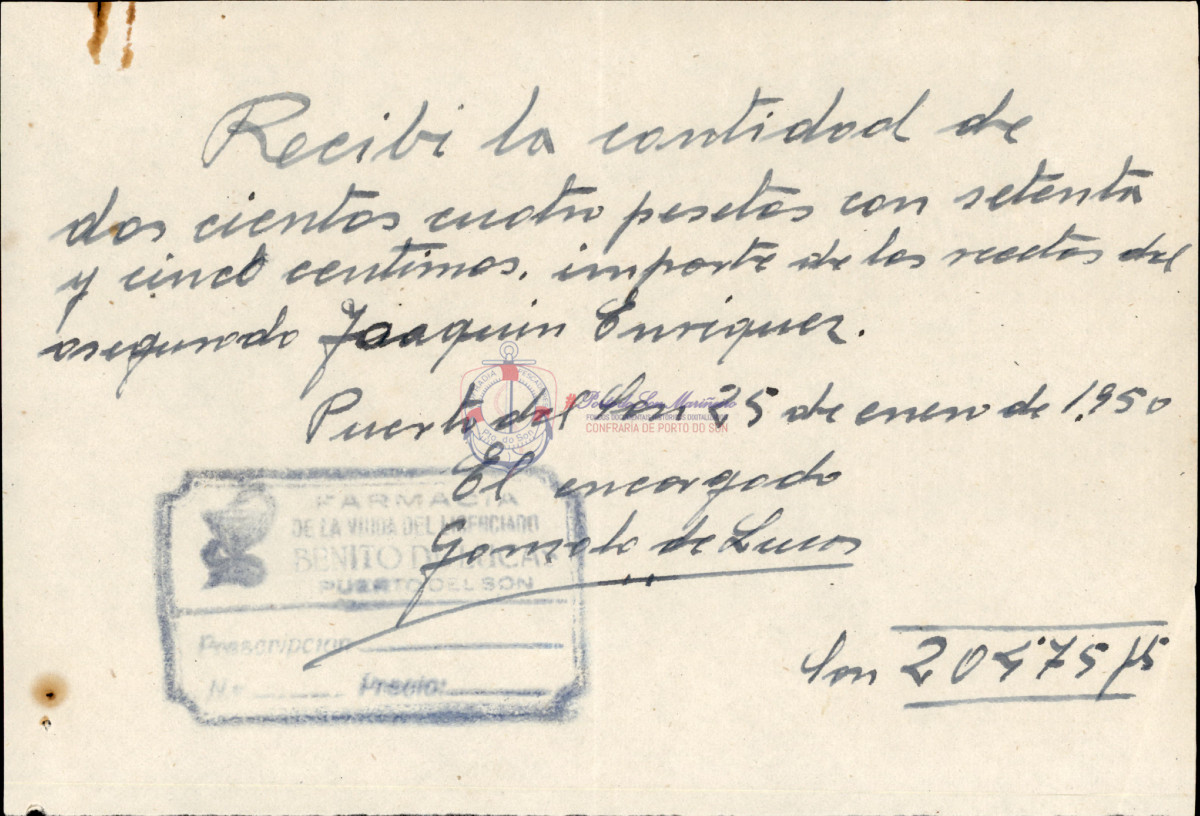 Recibi la cantidad de
dos cientos cuatro pesetas con setenta
y cinco centimos, importe de las recetas del
asegurado Joaquin Enriquez.
Puerto del Son 25 de enero de 1.950
El encargado
Gonzalo de Lucas
Son 204'75 pts
FARMACIA
DE LA VIUDA DEL LICENCIADO
BENITO DE LUCAS
PUERTO DEL SON
Prescripcion
N.º Precio:
Pto. do Son
CONFRARÍA DE PORTO DO SON